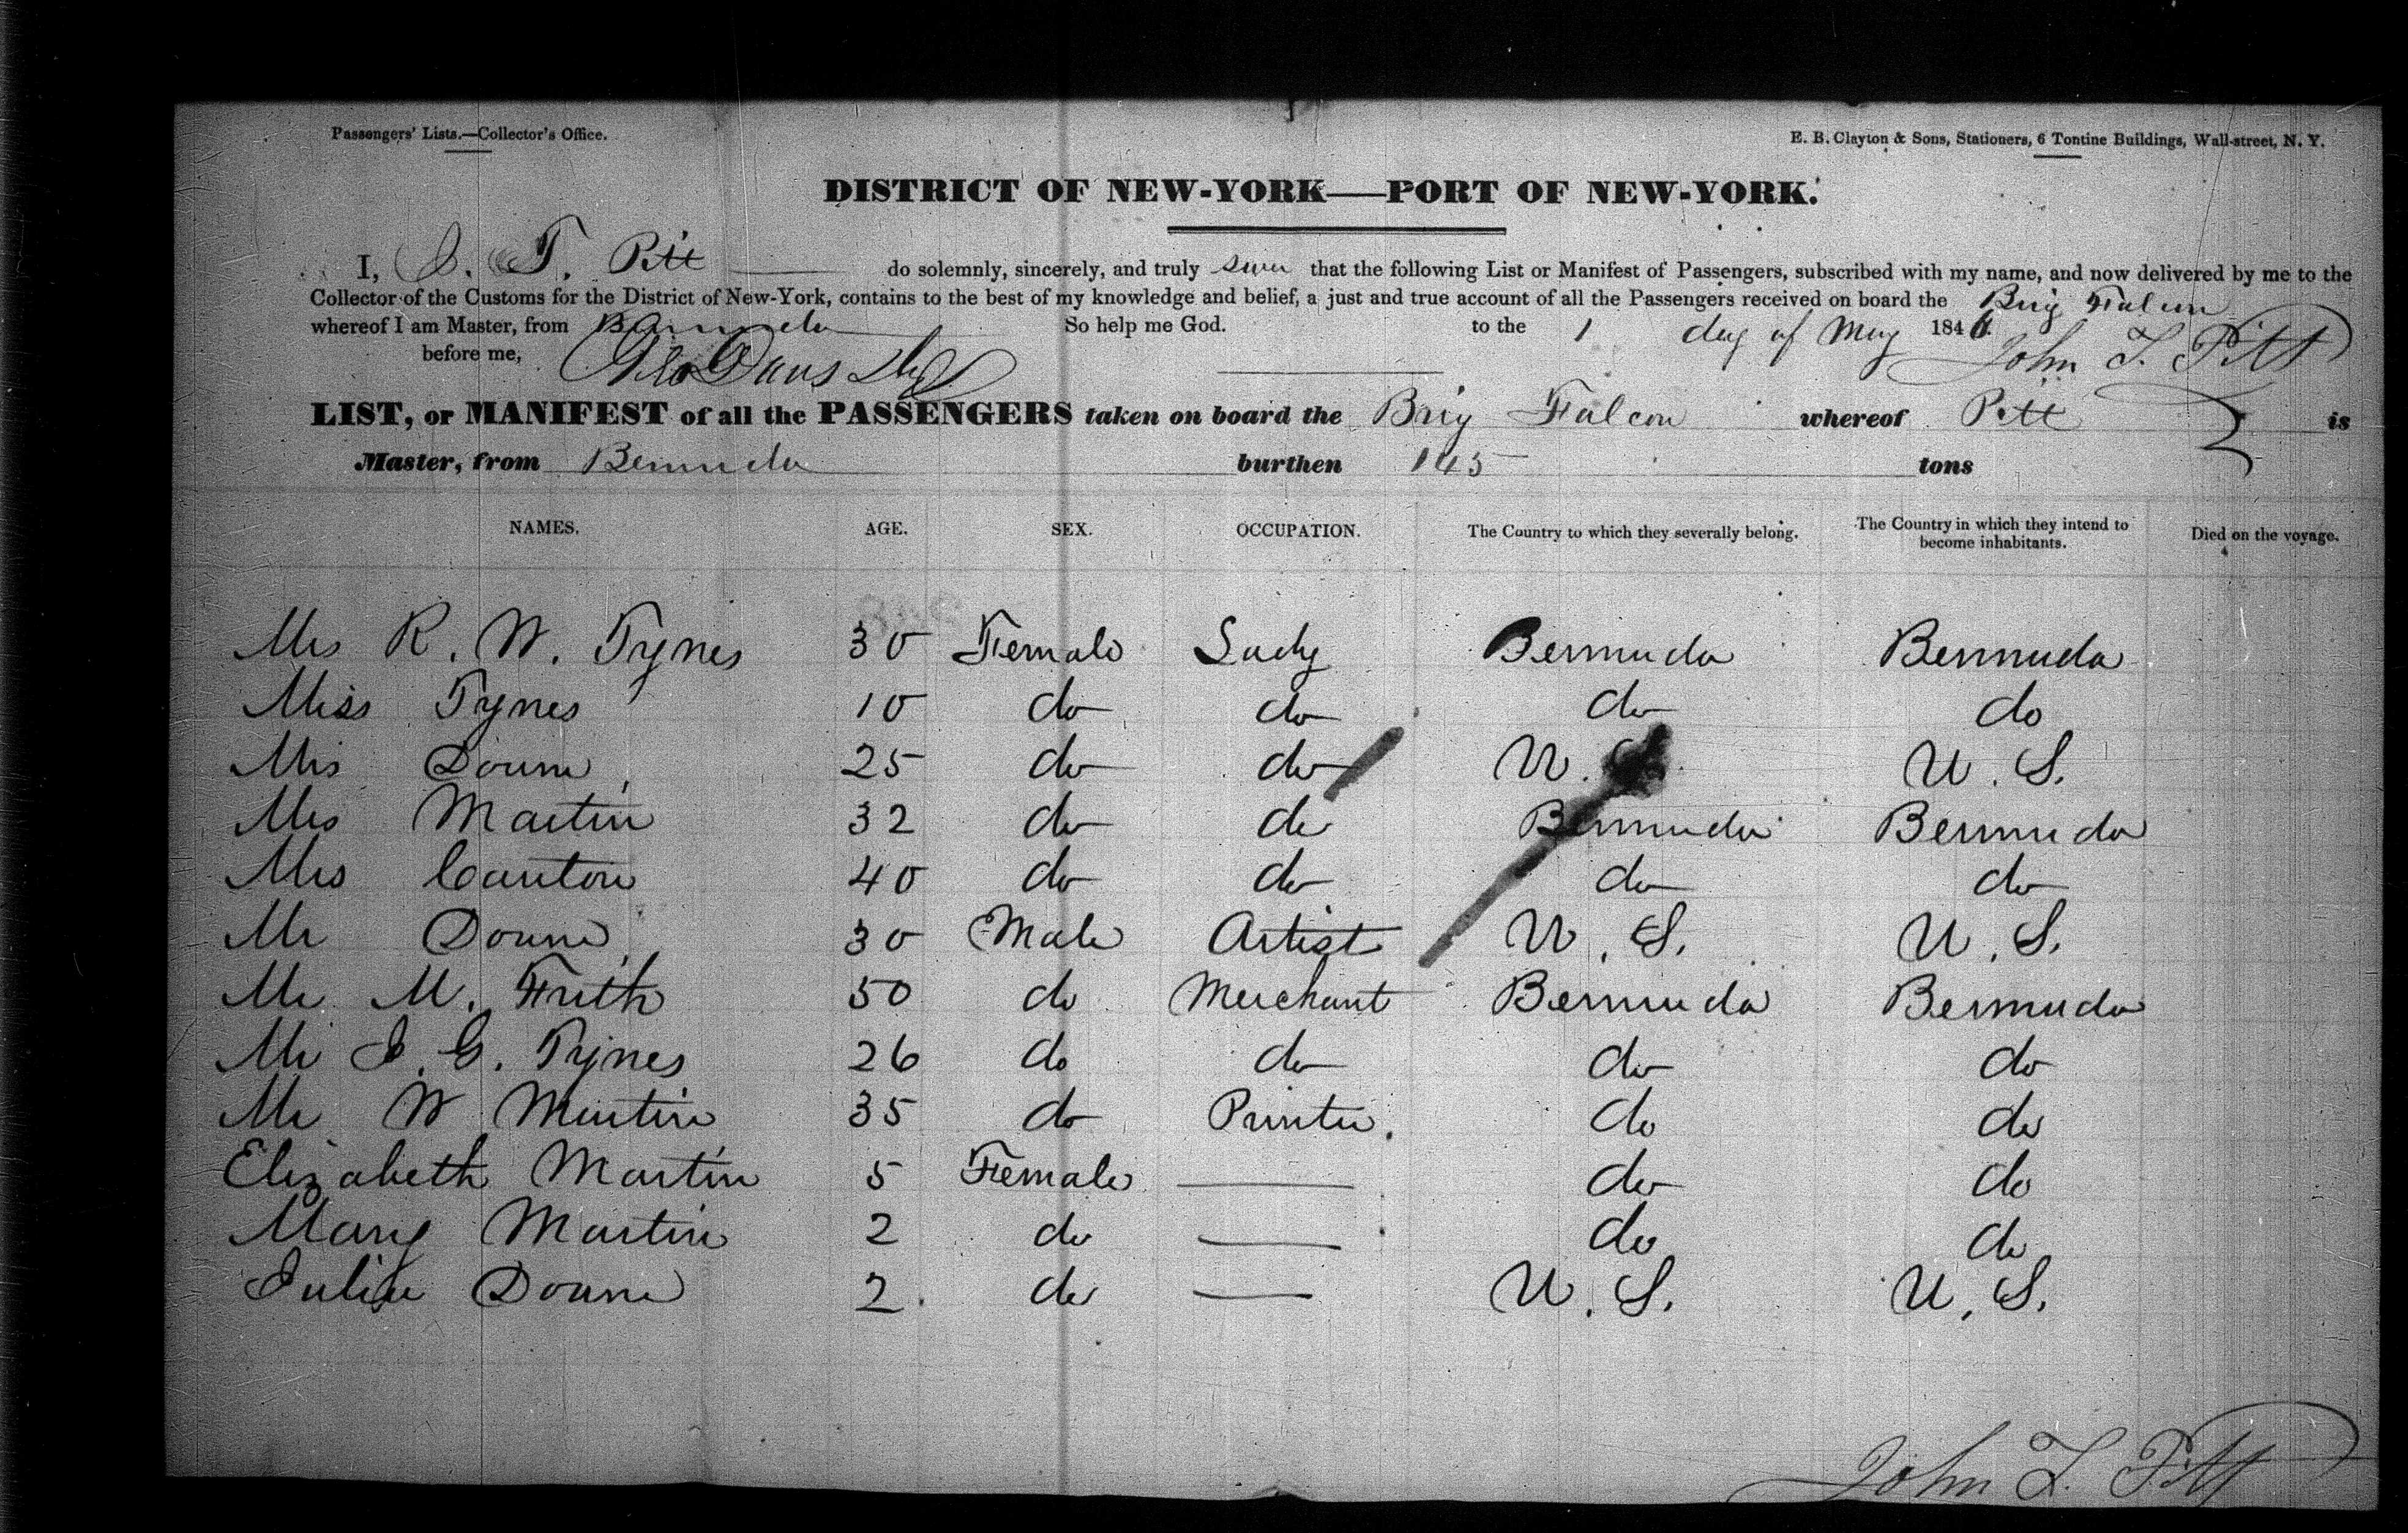 Passengers' Lists.—Collector's Office. E. B. Clayton & Sons, Stationers, 6 Tontine Buildings, Wall-street, N. Y.
DISTRICT OF NEW-YORK—PORT OF NEW-YORK.
I, J. T. Pitt do solemnly, sincerely, and truly swear that the following List or Manifest of Passengers, subscribed with my name, and now delivered by me to the
Collector of the Customs for the District of New-York, contains to the best of my knowledge and belief, a just and true account of all the Passengers received on board the Brig Falcon
whereof I am Master, from Bermuda So help me God. to the 1 day of May 1846.
before me, John T. Pitt
LIST, or MANIFEST of all the PASSENGERS taken on board the Brig Falcon whereof Pitt is
Master, from Bermuda burthen 145 tons
NAMES. AGE. SEX. OCCUPATION. The Country to which they severally belong. The Country in which they intend to become inhabitants. Died on the voyage.
Mrs R. W. Tynes 30 Female Lady Bermuda Bermuda
Miss Tynes 10 do do do do
Mrs Doane 25 do do U. S. U. S.
Mrs Martin 32 do do Bermuda Bermuda
Mrs Canton 40 do do do do
Mr Doane 30 Male Artist U. S. U. S.
Mr M. Frith 50 do Merchant Bermuda Bermuda
Mr J. G. Tynes 26 do do do do
Mr W Martin 35 do Printer. do do
Elizabeth Martin 5 Female — do do
Mary Martin 2 do — do do
Julia Doane 2 do — U. S. U. S.
John T. Pitt